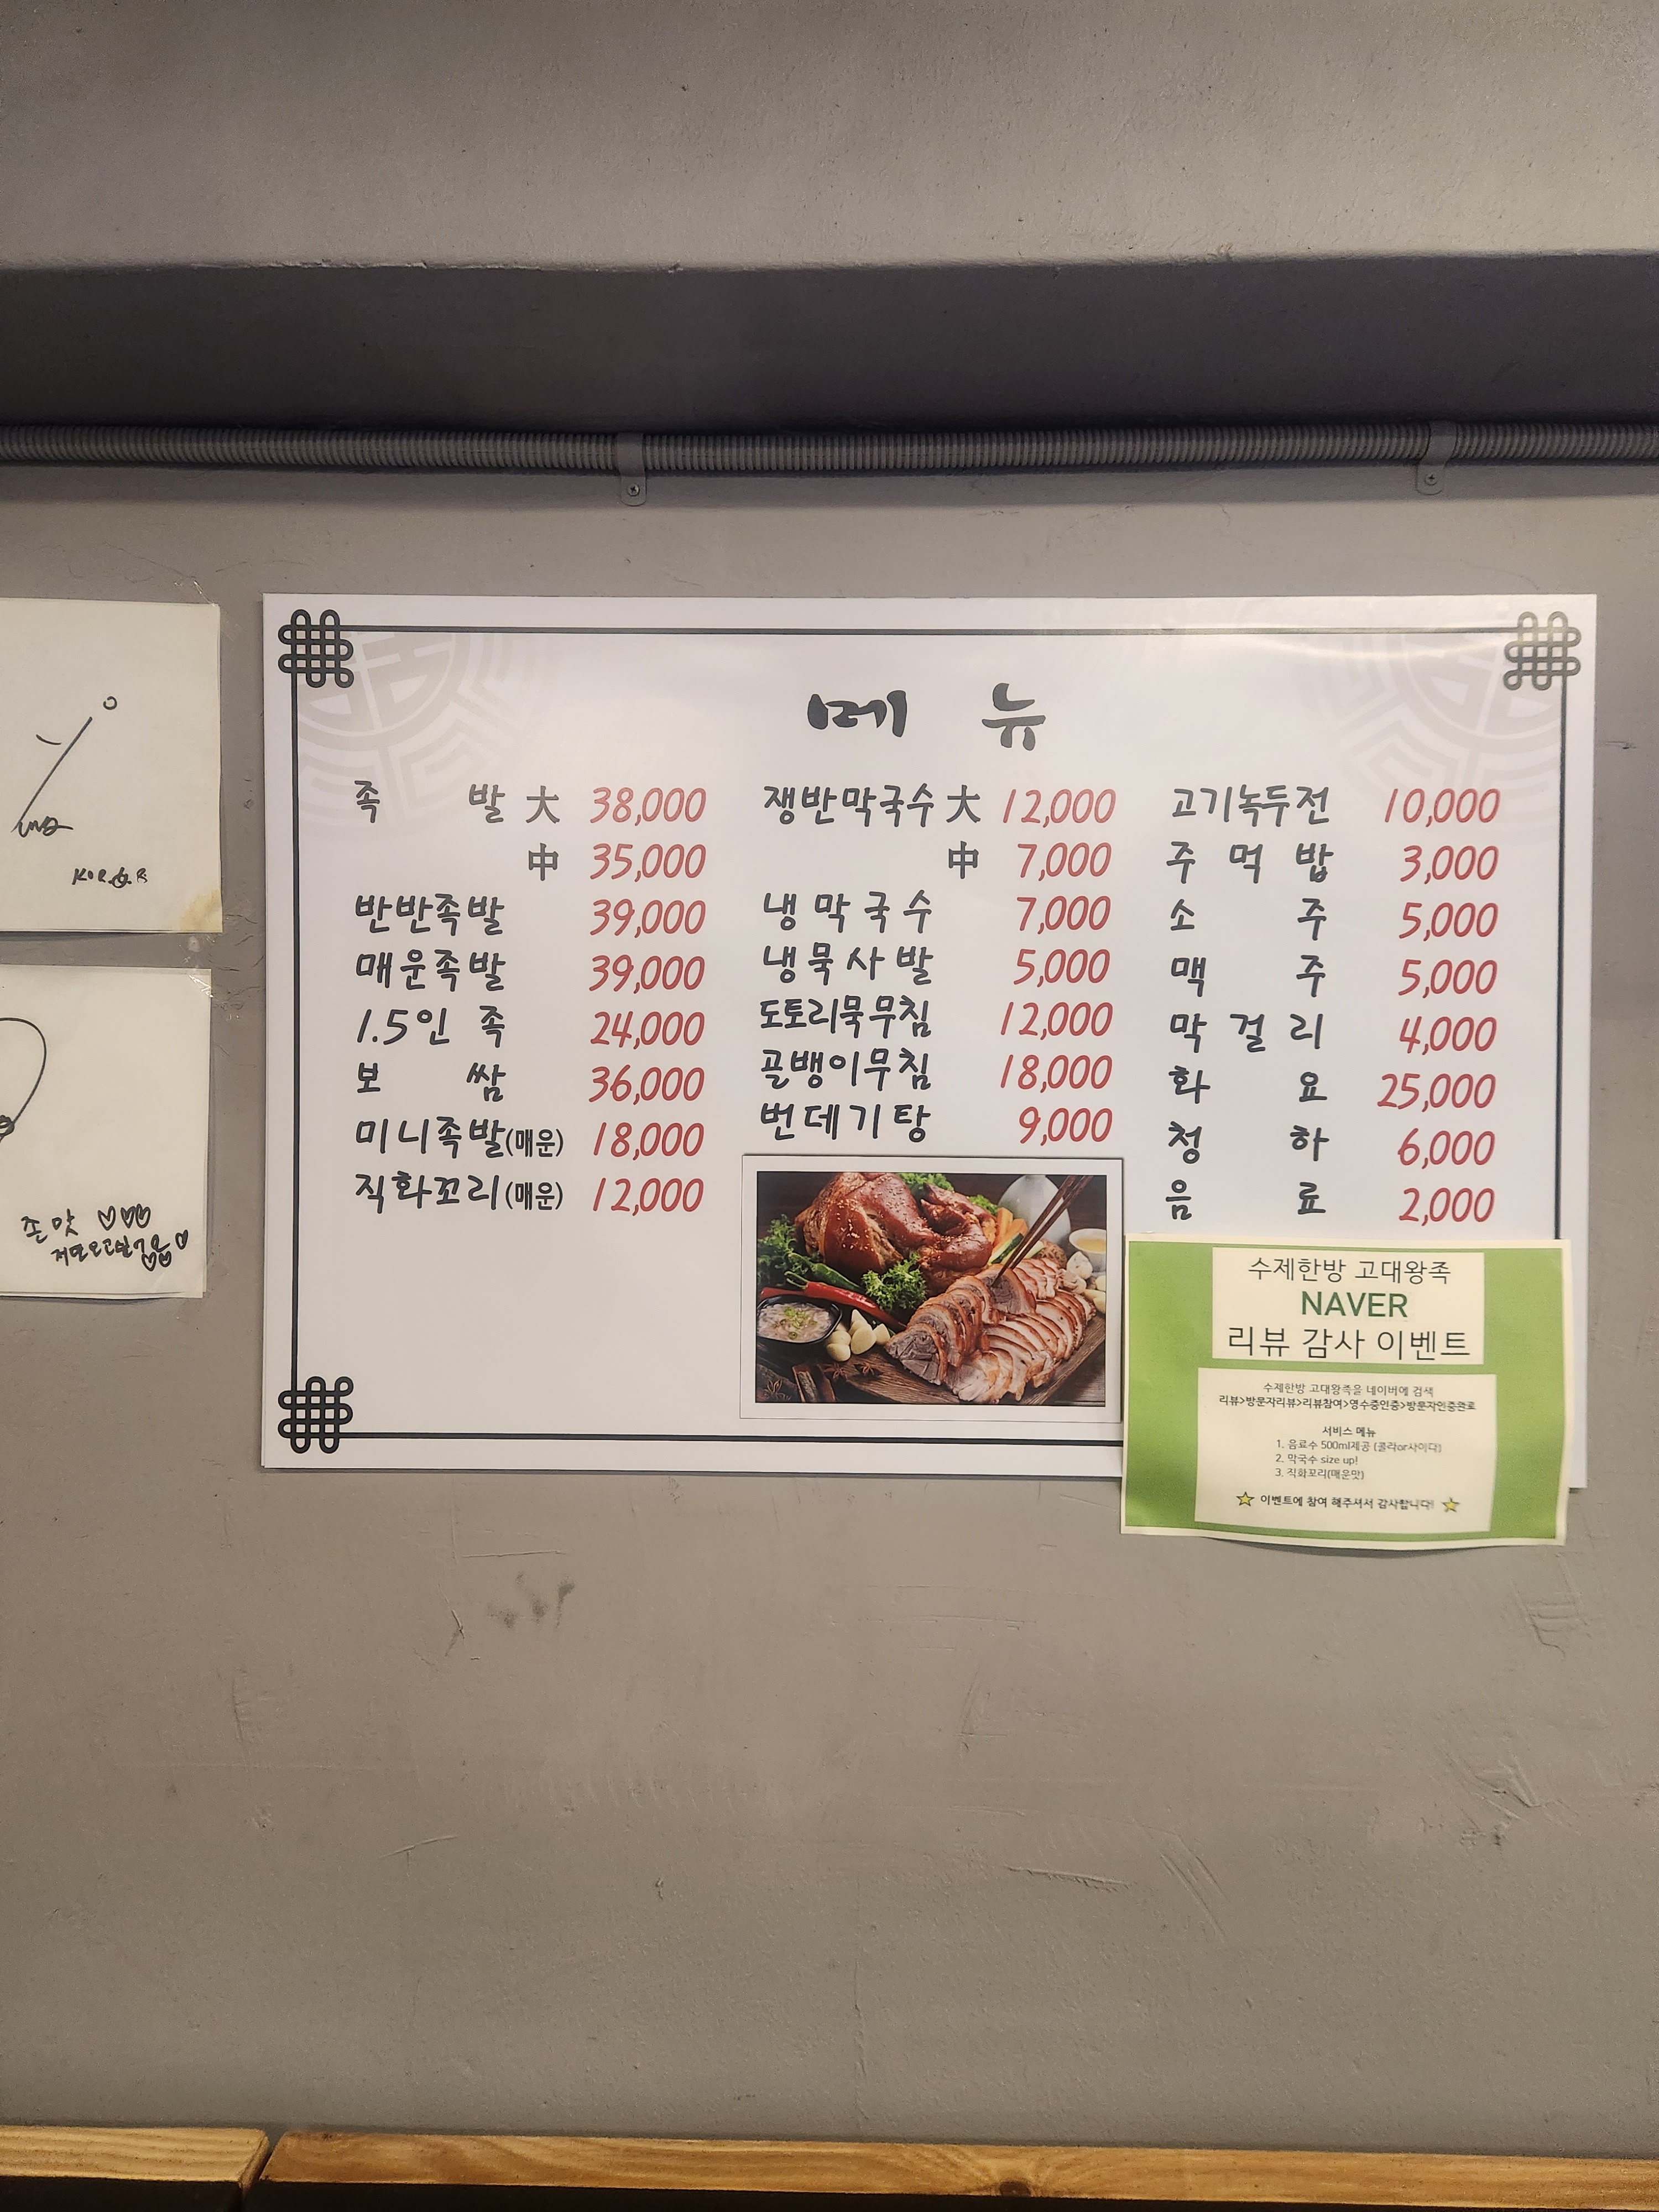 메 뉴
족 발 大 38,000
中 35,000
반반족발 39,000
매운족발 39,000
1.5인 족 24,000
보 쌈 36,000
미니족발(매운) 18,000
직화꼬리(매운) 12,000
쟁반막국수 大 12,000
中 7,000
냉막국수 7,000
냉묵사발 5,000
도토리묵무침 12,000
골뱅이무침 18,000
번데기탕 9,000
고기녹두전 10,000
주먹밥 3,000
소 주 5,000
맥 주 5,000
막걸리 4,000
화 요 25,000
청 하 6,000
음 료 2,000
수제한방 고대왕족
NAVER
리뷰 감사 이벤트
수제한방 고대왕족을 네이버에 검색
리뷰>방문자리뷰>리뷰참여>영수증인증>방문자인증완료
서비스 메뉴
1. 음료수 500ml제공 (콜라or사이다)
2. 막국수 size up!
3. 직화꼬리(매운맛)
이벤트에 참여 해주셔서 감사합니다!
존맛